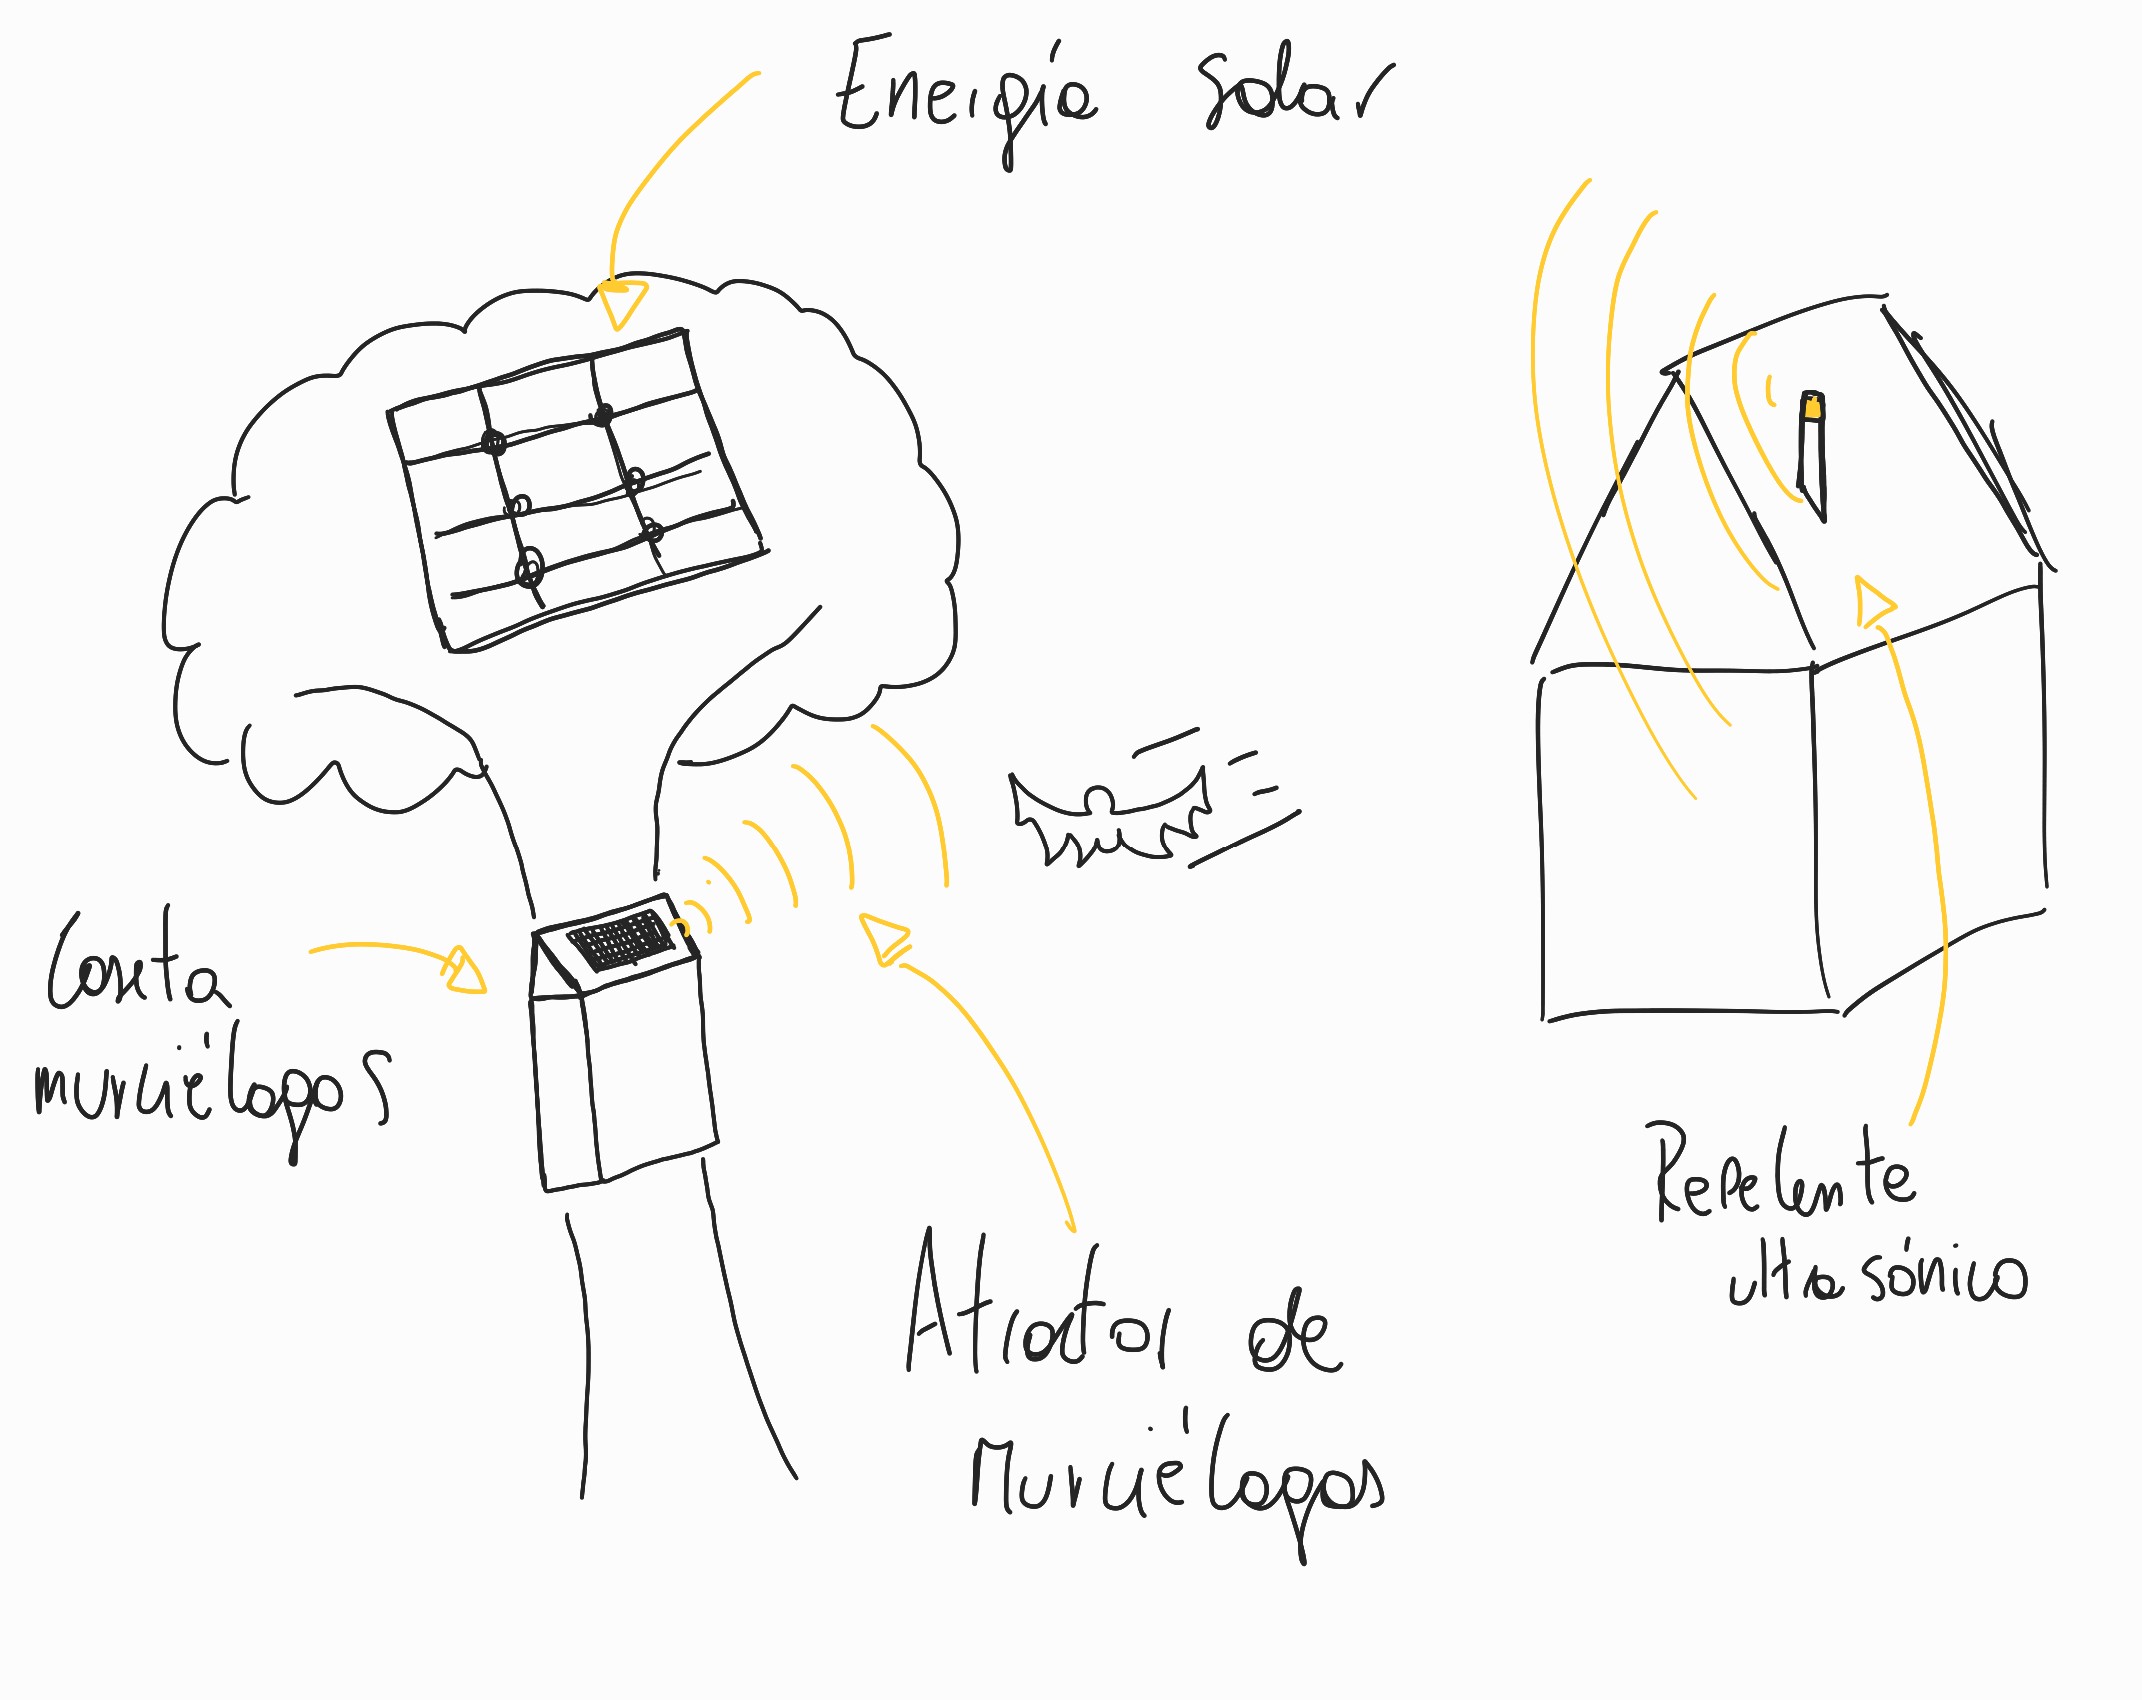 Energía Solar
Conta
murciélagos
Atrator de
Murciélagos
Repelente
ultrasónico